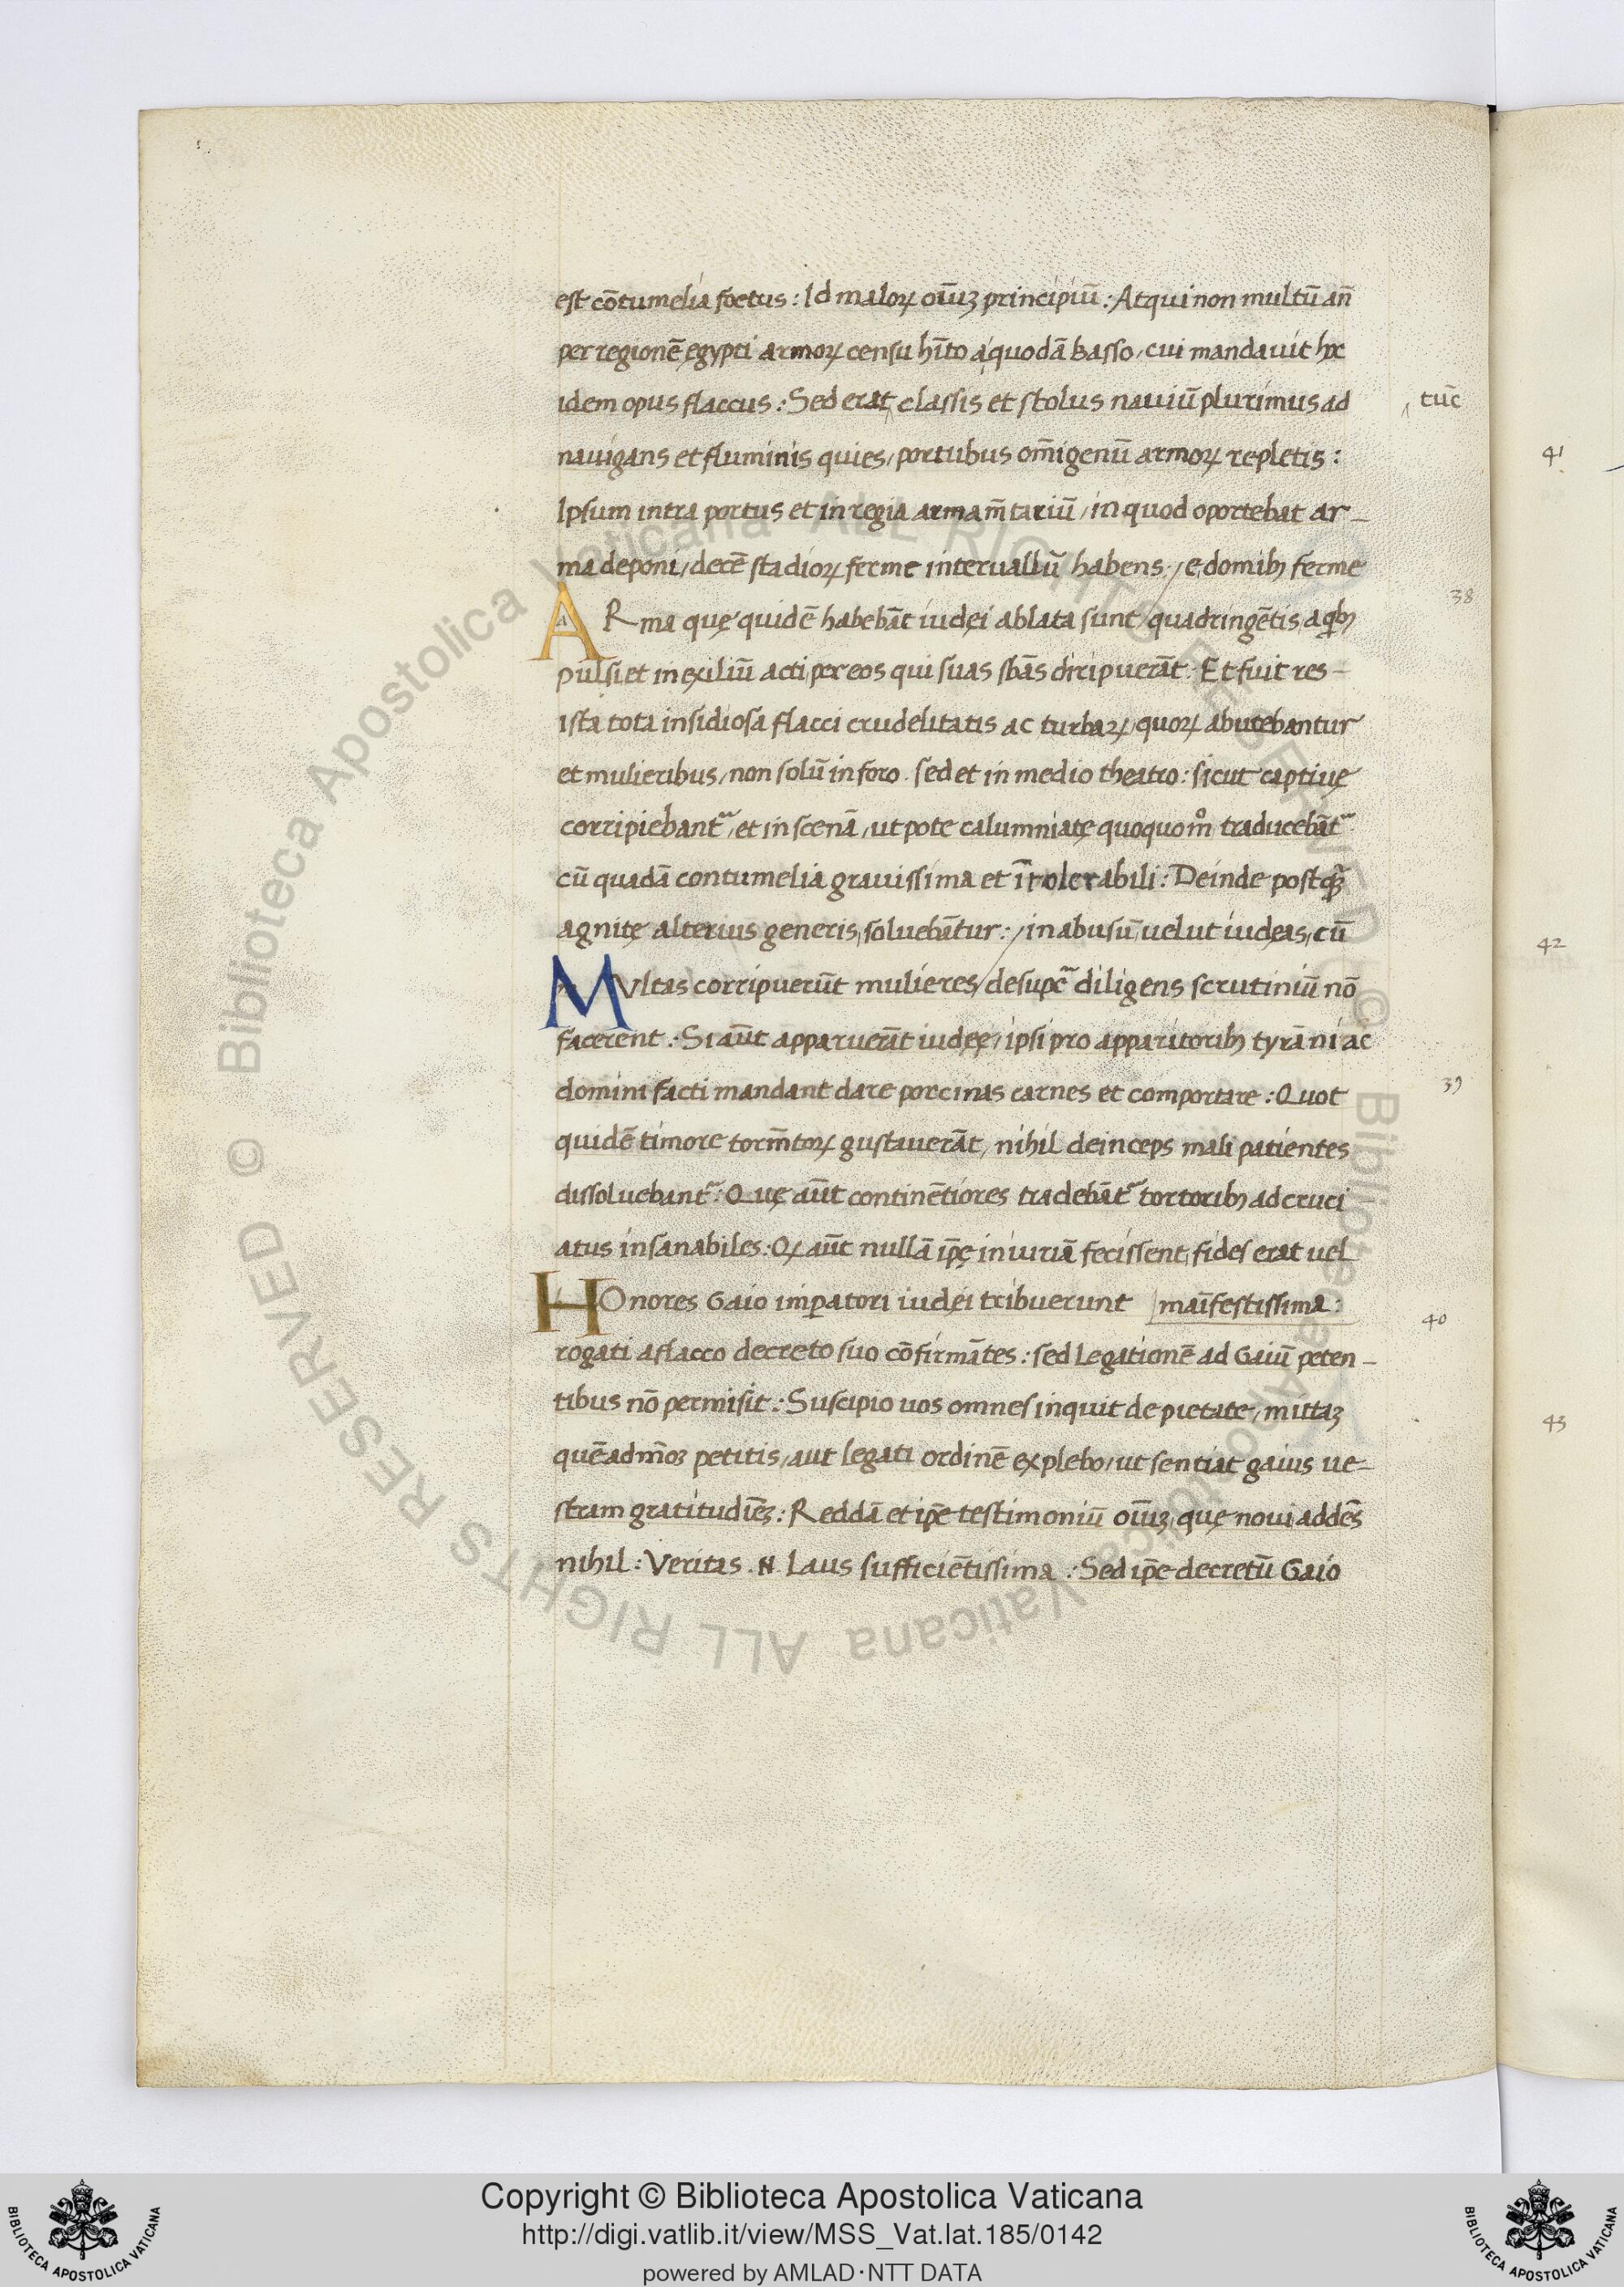 est cōtumelia foetus : Id maloꝝ oīuꝫ principiū : Atqui non multū an̄
per regionē ęgypti armoꝝ censu hīto a quodā basso / cui mandauit hoc
idem opus flaccus : Sed erat ‸ classis et stolus nauiū plurimus ad
tūc
nauigans et fluminis quies / portubus om̄igenū armoꝝ repletis :
Ipsum intra portus et in regia armam̄tariū / in quod oportebat ar–
ma deponi / decē stadioꝝ ferme interuallū habens : / e domibꝫ ferme
ARma quę quidē habebāt iudęi ablata sunt / quadringētis a qbꝫ
38
pulsi et in exiliū acti per eos qui suas sbās diripuerāt : Et fuit res –
ista tota insidiosa flacci crudelitatis ac turbaꝝ / quoꝝ abutebantur
et mulieribus / non solū in foro . sed et in medio theatro : sicut captiuę
corripiebant᷑ / et in scenā / ut pote calumniatę quoquo mͦ traducebāt᷑
cū quadā contumelia grauissima et ītolerabili : Deinde postqꝫ
agnitę alterius generis soluebātur : / in abusū uelut iudęas / cū
MVltas corripuerūt mulieres / desuꝑ diligens scrutiniū nō
facerent : Si aūt apparuerāt iudęę / ipsi pro apparitoribꝫ tyrāni ac
domini facti mandant dare porcinas carnes et comportare : Quot
39
quidē timore torm̄toꝝ gustauerāt / nihil deinceps mali patientes
dissoluebant᷑ : Quę aūt continētiores tradebāt᷑ tortoribꝫ ad cruci
atus insanabiles : Qꝝ aūt nullā ip̄ę iniuriā fecissent / fides erat uel
HOnores Gaio imꝑatori iudęi tribuerunt maīfestissima :
40
rogati a flacco decreto suo cōfirmātes : sed legationē ad Gaiū peten –
tibus nō permisit : Suscipio uos omnes inquit de pietate / mittaꝫ
quēadm̄oꝫ petitis / aut legati ordinē explebo / ut sentiat gaius ue–
stram gratitudīeꝫ : Reddā et ip̄e testimoniū oīuꝫ quę noui addēs
nihil : Veritas . N . laus sufficiētissima : Sed ip̄e decretū Gaio
41
42
43
Copyright © Biblioteca Apostolica Vaticana
http://digi.vatlib.it/view/MSS_Vat.lat.185/0142
powered by AMLAD·NTT DATA
BIBLIOTECA APOSTOLICA VATICANA
BIBLIOTECA APOSTOLICA VATICANA
© Biblioteca Apostolica Vaticana ALL RIGHTS RESERVED © Biblioteca Apostolica Vaticana ALL RIGHTS RESERVED